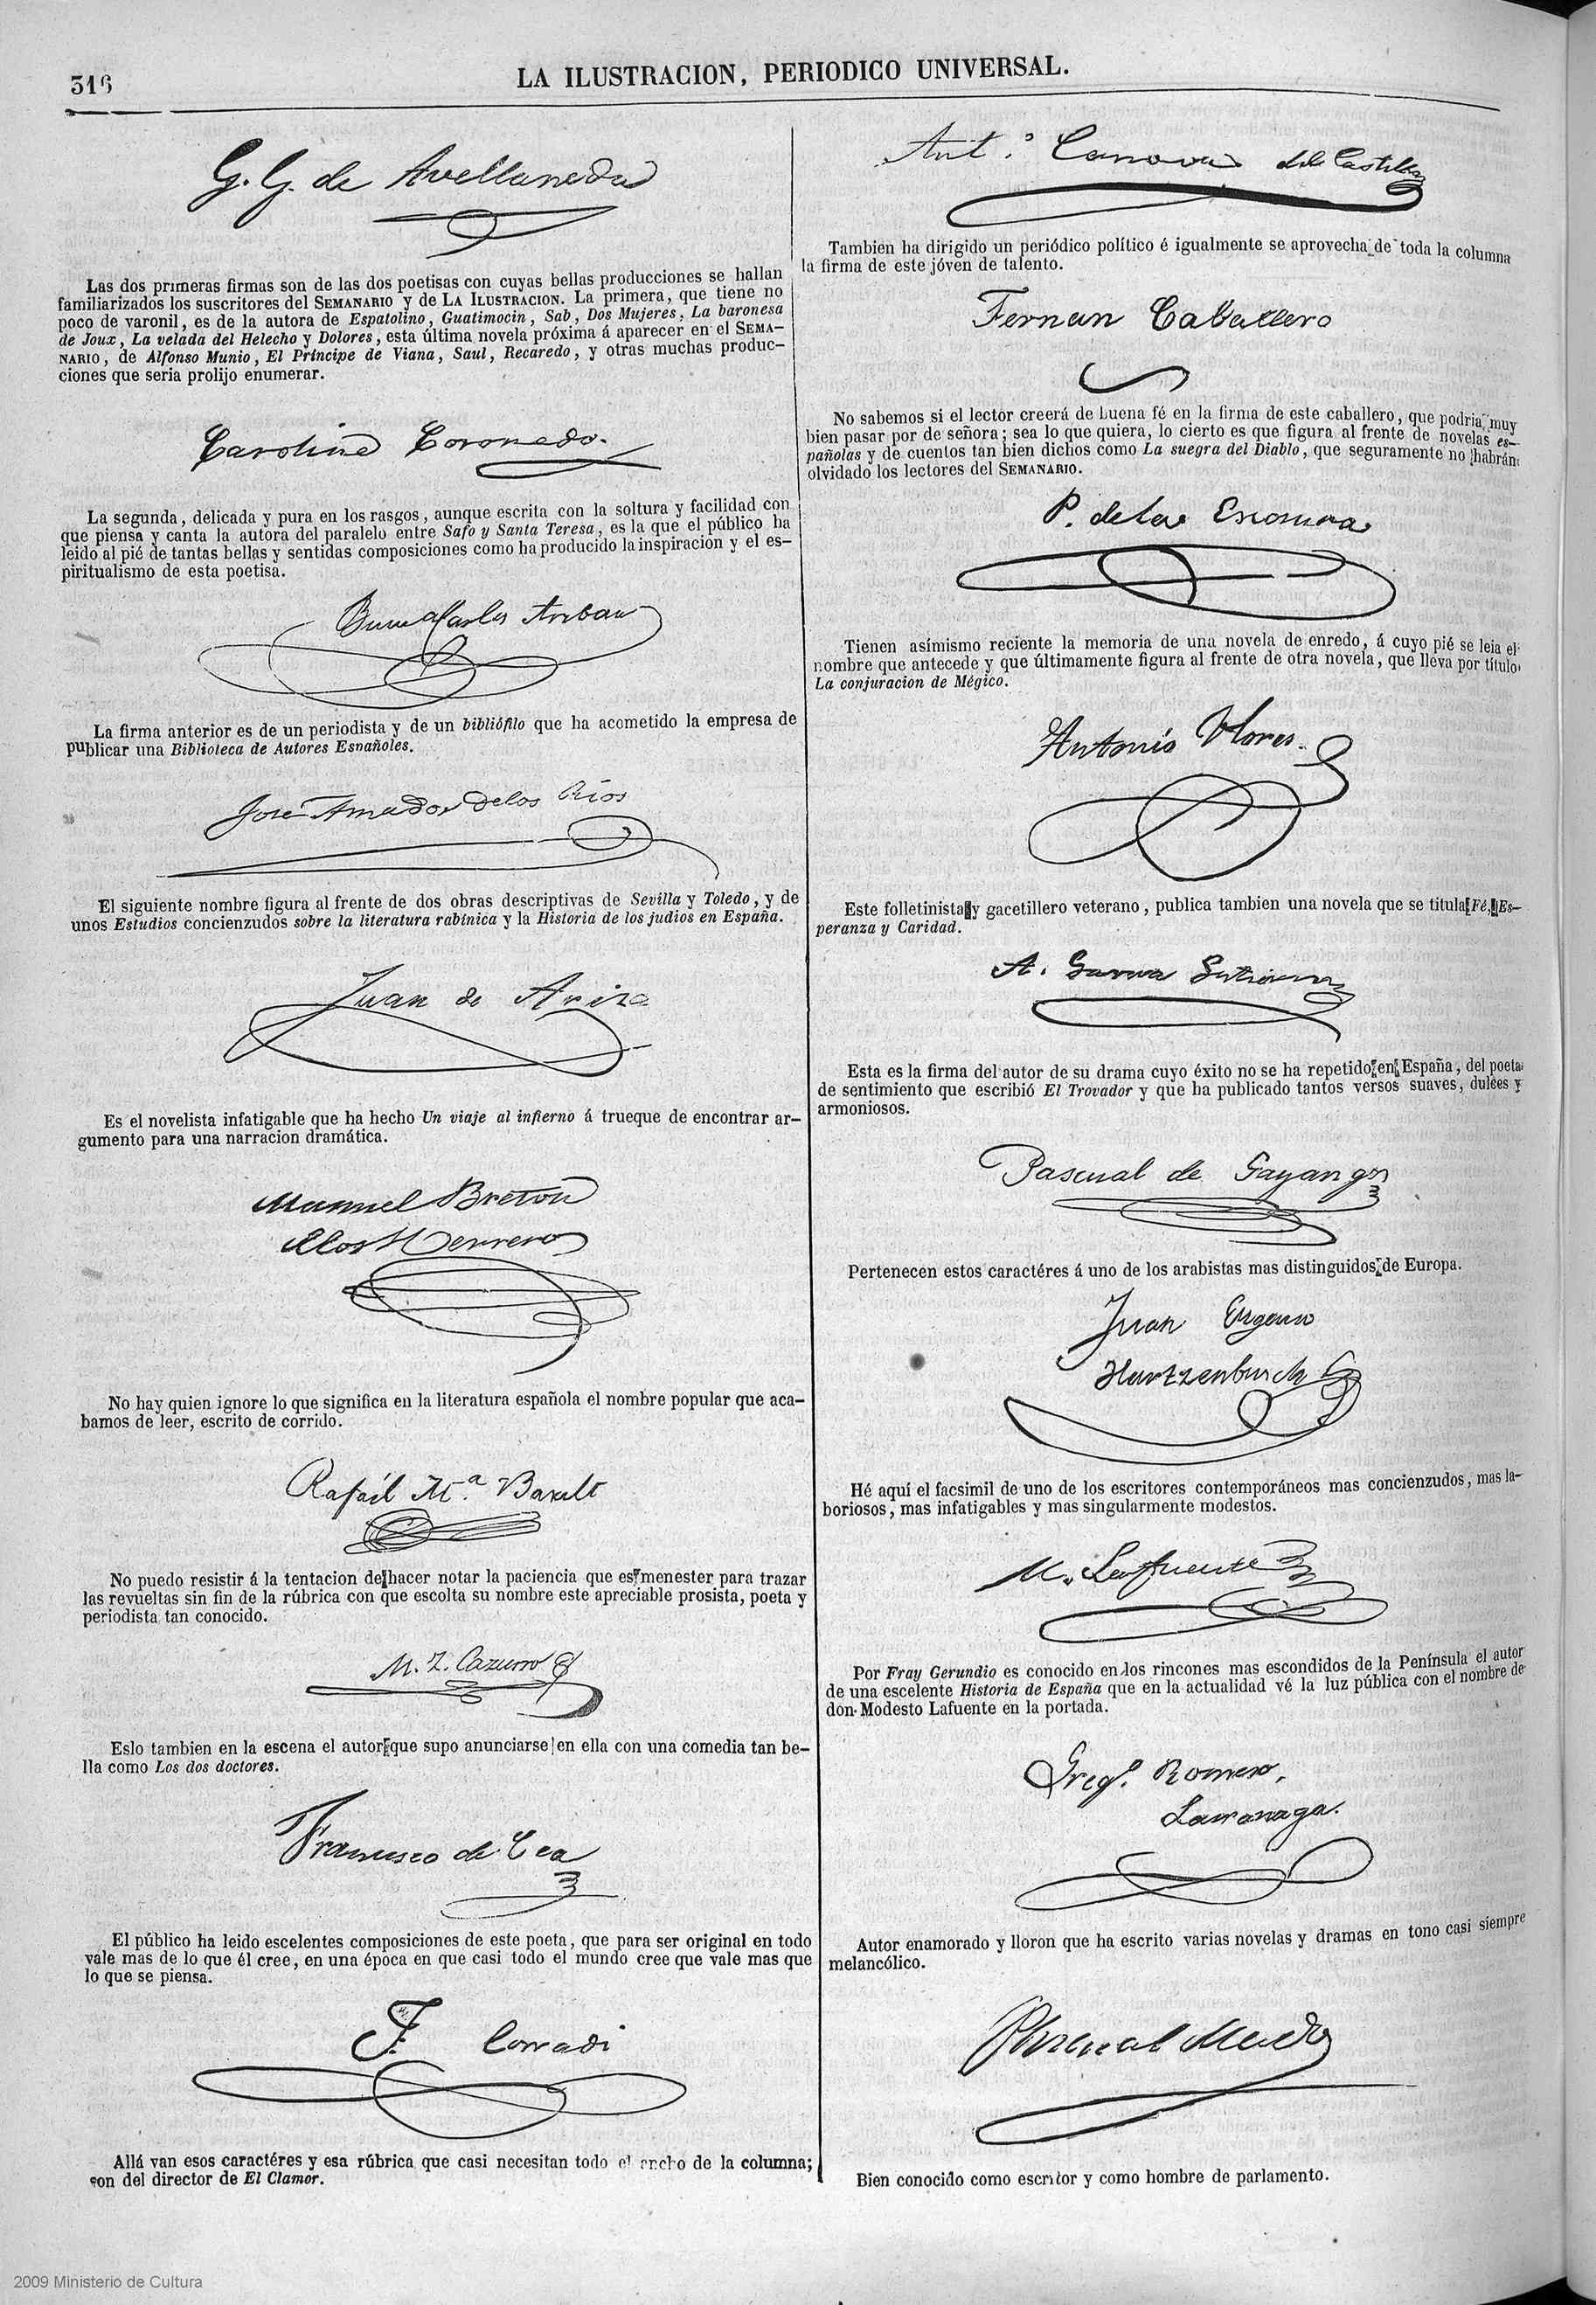 316
LA ILUSTRACION, PERIODICO UNIVERSAL.
G. G. de Avellaneda
Las dos primeras firmas son de las dos poetisas con cuyas bellas producciones se hallan
familiarizados los suscritores del SEMANARIO y de LA ILUSTRACION. La primera, que tiene no
poco de varonil, es de la autora de Espatolino, Guatimocin, Sab, Dos Mujeres, La baronesa
de Joux, La velada del Helecho y Dolores, esta última novela próxima á aparecer en el SEMA-
NARIO, de Alfonso Munio, El Príncipe de Viana, Saul, Recaredo, y otras muchas produc-
ciones que seria prolijo enumerar.
Carolina Coronado.
La segunda, delicada y pura en los rasgos, aunque escrita con la soltura y facilidad con
que piensa y canta la autora del paralelo entre Safo y Santa Teresa, es la que el público ha
leido al pié de tantas bellas y sentidas composiciones como ha producido la inspiracion y el es-
piritualismo de esta poetisa.
Buena Carlos Aribau
La firma anterior es de un periodista y de un bibliófilo que ha acometido la empresa de
publicar una Biblioteca de Autores Españoles.
José Amador de los Rios
El siguiente nombre figura al frente de dos obras descriptivas de Sevilla y Toledo, y de
unos Estudios concienzudos sobre la literatura rabínica y la Historia de los judios en España.
Juan de Ariza
Es el novelista infatigable que ha hecho Un viaje al infierno á trueque de encontrar ar-
gumento para una narracion dramática.
Manuel Breton
de los Herreros
No hay quien ignore lo que significa en la literatura española el nombre popular que aca-
bamos de leer, escrito de corrido.
Rafaél M.ª Baralt
No puedo resistir á la tentacion de hacer notar la paciencia que es menester para trazar
las revueltas sin fin de la rúbrica con que escolta su nombre este apreciable prosista, poeta y
periodista tan conocido.
M. Z. Cazurro
Eslo tambien en la escena el autor que supo anunciarse en ella con una comedia tan be-
lla como Los dos doctores.
Francisco de Cea
El público ha leido escelentes composiciones de este poeta, que para ser original en todo
vale mas de lo que él cree, en una época en que casi todo el mundo cree que vale mas que
lo que se piensa.
F. Corradi
Allá van esos caractéres y esa rúbrica que casi necesitan todo el ancho de la columna;
son del director de El Clamor.
Ant.º Canovas del Castillo
Tambien ha dirigido un periódico político é igualmente se aprovecha de toda la columna
la firma de este jóven de talento.
Fernan Caballero
No sabemos si el lector creerá de buena fé en la firma de este caballero, que podria muy
bien pasar por de señora; sea lo que quiera, lo cierto es que figura al frente de novelas es-
pañolas y de cuentos tan bien dichos como La suegra del Diablo, que seguramente no habrán
olvidado los lectores del SEMANARIO.
P. de la Escosura
Tienen asímismo reciente la memoria de una novela de enredo, á cuyo pié se leia el
nombre que antecede y que últimamente figura al frente de otra novela, que lleva por título
La conjuracion de Mégico.
Antonio Flores.
Este folletinista y gacetillero veterano, publica tambien una novela que se titula Fé, Es-
peranza y Caridad.
A. Garcia Gutierrez
Esta es la firma del autor de su drama cuyo éxito no se ha repetido en España, del poeta
de sentimiento que escribió El Trovador y que ha publicado tantos versos suaves, dulces y
armoniosos.
Pascual de Gayangos
Pertenecen estos caractéres á uno de los arabistas mas distinguidos de Europa.
Juan Eugenio
Hartzenbusch
Hé aquí el facsimil de uno de los escritores contemporáneos mas concienzudos, mas la-
boriosos, mas infatigables y mas singularmente modestos.
M. Lafuente
Por Fray Gerundio es conocido en los rincones mas escondidos de la Península el autor
de una escelente Historia de España que en la actualidad vé la luz pública con el nombre de
don Modesto Lafuente en la portada.
Greg.º Romero
Larrañaga.
Autor enamorado y lloron que ha escrito varias novelas y dramas en tono casi siempre
melancólico.
Bien conocido como escritor y como hombre de parlamento.
2009 Ministerio de Cultura